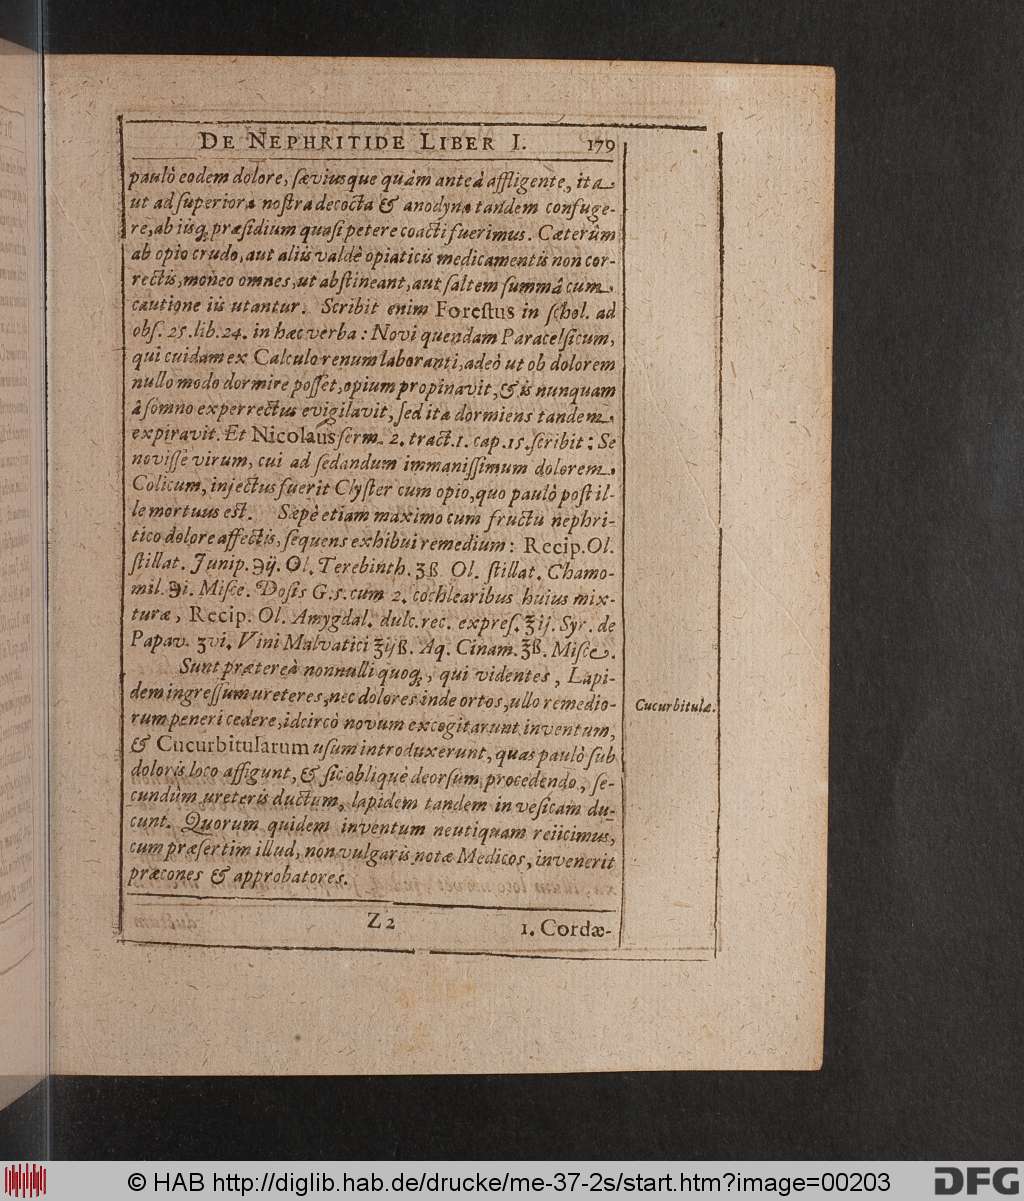 DE NEPHRITIDE LIBER I. 179
paulò eodem dolore, sæviusque quàm anteà affligente, ita
ut ad superiora nostra decocta & anodyna tandem confuge-
re, ab iisq́; præsidium quasi petere coacti fuerimus. Cæterùm
ab opio crudo, aut aliis valdè opiaticis medicamentis non cor-
rectis, moneo omnes, ut abstineant, aut saltem summâ cum
cautione iis utantur. Scribit enim Forestus in schol. ad
obs. 25. lib. 24. in hæc verba: Novi quendam Paracelsicum,
qui cuidam ex Calculo renum laboranti, adeò ut ob dolorem
nullo modo dormire posset, opium propinavit, & is nunquam
â somno experrectus evigilavit, sed ita dormiens tandem
expiravit. Et Nicolaus serm. 2. tract. 1. cap. 15. scribit: Se
novisse virum, cui ad sedandum immanissimum dolorem
Colicum, injectus fuerit Clyster cum opio, quo paulò post il-
le mortuus est. Sæpè etiam maximo cum fructu nephri-
tico dolore affectis, sequens exhibui remedium: Recip. Ol.
stillat. Junip. ℈ij. Ol. Terebinth. ʒß Ol. stillat. Chamo-
mil. ℈i. Misce. Dosis G.s. cum 2. cochlearibus huius mix-
turæ, Recip. Ol. Amygdal. dulc. rec. expres. ℥ij. Syr. de
Papav. ʒvi. Vini Malvatici ℥ijß. Aq. Cinam. ℥ß. Misce.
Sunt prætereà nonnulli quoq́;, qui videntes, Lapi-
dem ingressum ureteres, nec dolores inde ortos, ullo remedio-
rum peneri cedere, idcircò novum excogitarunt inventum,
& Cucurbitularum usum introduxerunt, quas paulò sub
doloris loco affigunt, & sic obliquè deorsum procedendo, se-
cundùm ureteris ductum, lapidem tandem in vesicam du-
cunt. Quorum quidem inventum neutiquam reiicimus,
cum præsertim illud, non vulgaris notæ Medicos, invenerit
præcones & approbatores.
Cucurbitulæ.
Z 2 1. Cordæ-
© HAB http://diglib.hab.de/drucke/me-37-2s/start.htm?image=00203 DFG